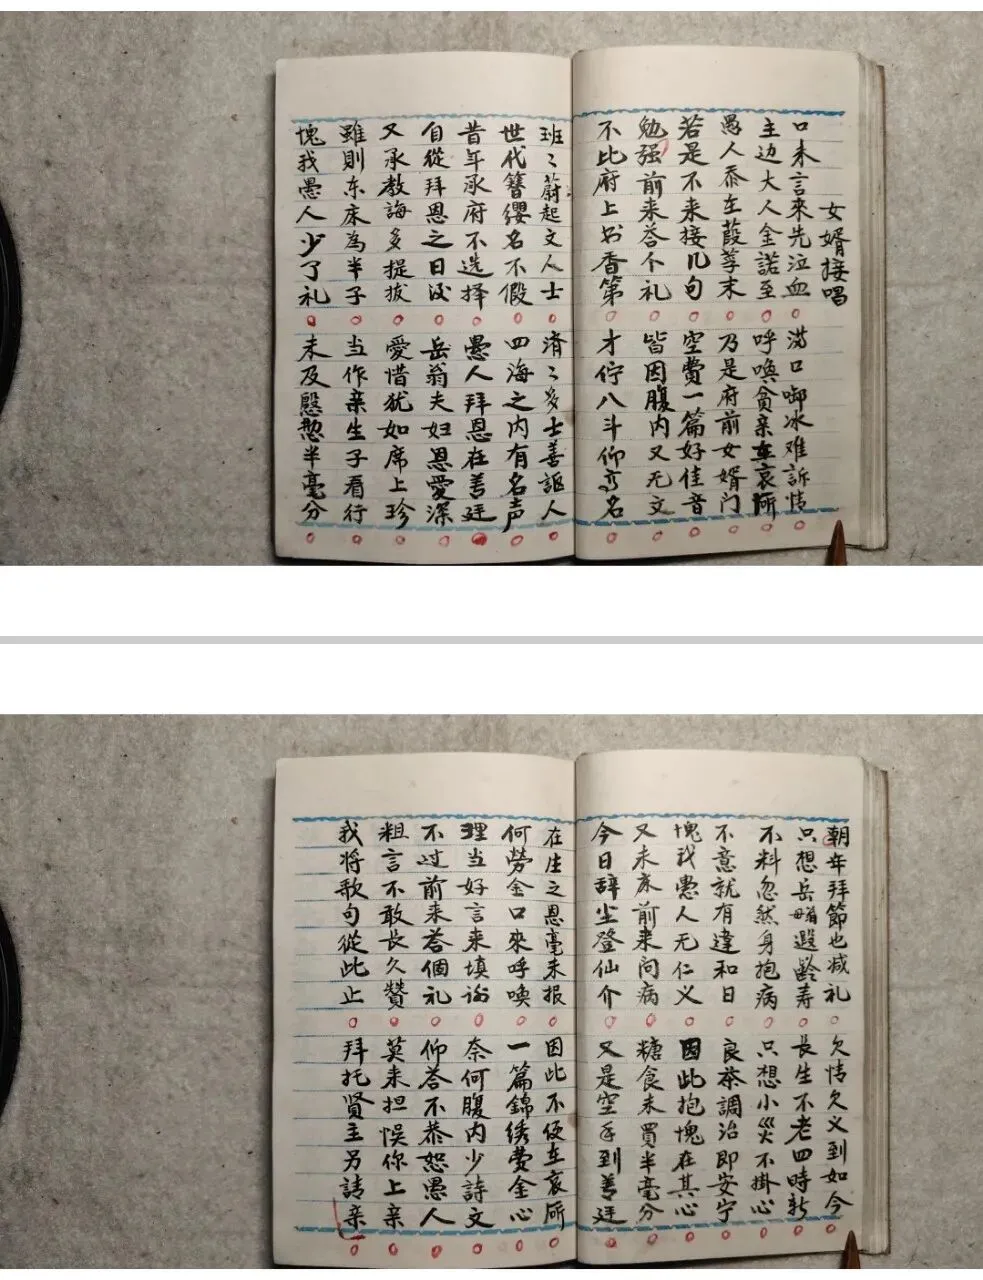 女婿接唱
口未言來先泣血 满口啣冰难訴情
主边大人金諾至 呼喚貧亲在哀所
愚人忝在葭莩末 乃是府前女婿门
若是不来接几句 空費一篇好佳音
勉强前来答个礼 皆因腹内又无文
不比府上书香第 才佇八斗仰高名
班〻蔚起文人士 濟〻多士善謳人
世代簪缨名不假 四海之内有名声
昔年承府不选择 愚人拜恩在善廷
自從拜恩之日後 岳翁夫妇恩愛深
又承教誨多提拔 愛惜犹如席上珍
雖則东床為半子 当作亲生子看行
愧我愚人少了礼 未及慇懃半毫分
朝年拜節也减礼 欠情欠义到如今
只想岳母遐齡寿 長生不老四時新
不料忽然身抱病 只想小災不掛心
不意就有違和日 良茶調治即安宁
愧我愚人无仁义 因此抱愧在其心
又未床前来问病 糖食未買半毫分
今日辞尘登仙介 又是空手到善廷
在生之恩毫未报 因此不便在哀所
何勞金口來呼喚 一篇錦绣费金心
理当好言来填謝 奈何腹内少詩文
不过前来荅個礼 仰荅不恭恕愚人
粗言不敢長久贊 莫来担悮你上亲
我将歌句從此止 拜托贤主另請亲